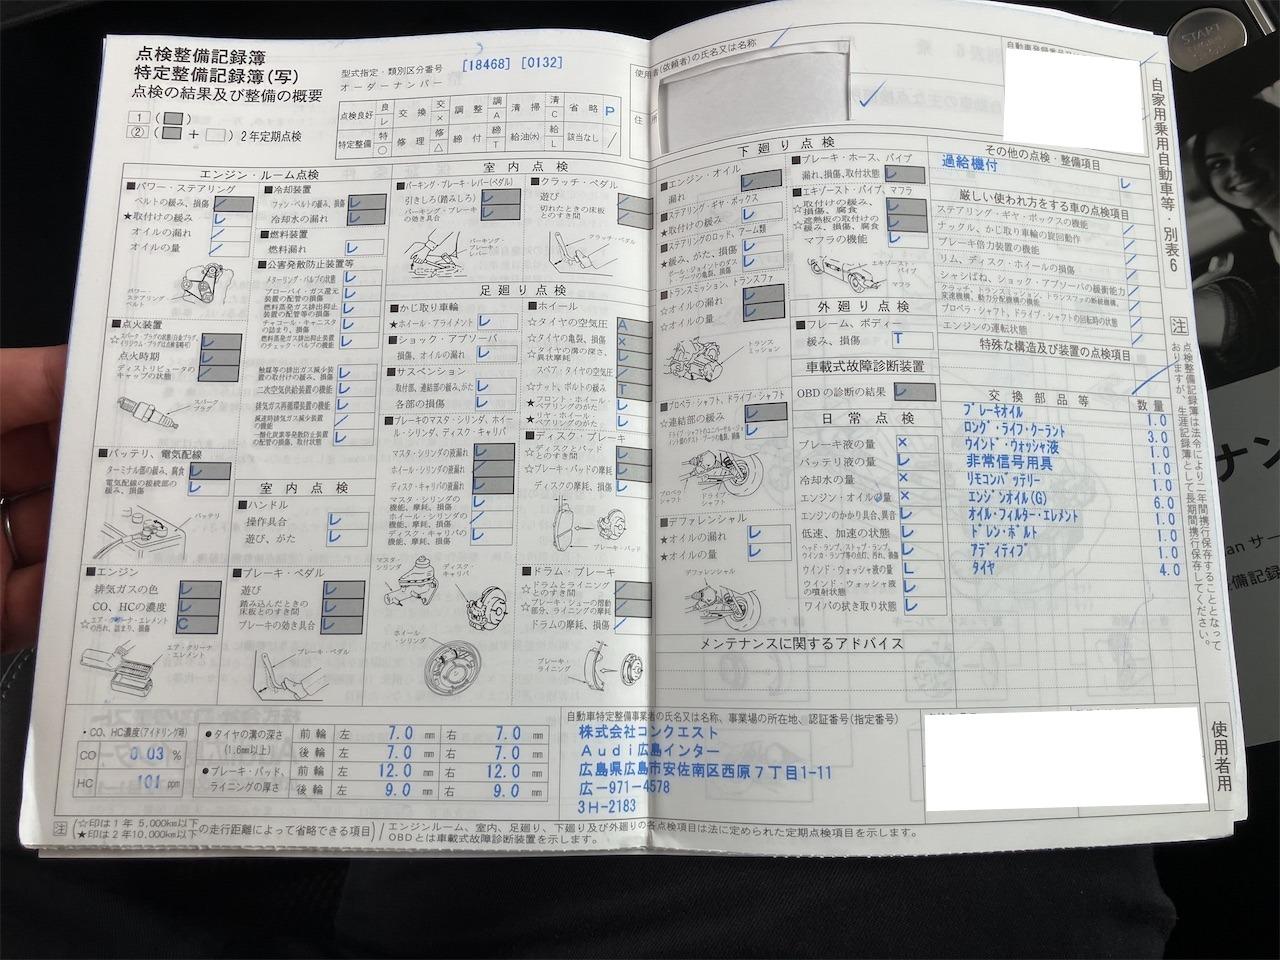 点検整備記録簿
特定整備記録簿(写)
点検の結果及び整備の概要
型式指定・類別区分番号 [18468] [0132]
オーダーナンバー
1 ( )
② ( + ) 2年定期点検
点検良好 良 レ 交換 交 × 調整 調 A 清掃 清 C 省略 P
特定整備 特 ○ 修理 修 △ 締付 締 T 給油(水) 給 L 該当なし /
使用者(依頼者)の氏名又は名称
住所
自家用乗用自動車等・別表6
エンジン・ルーム点検
■パワー・ステアリング
ベルトの緩み、損傷
★取付けの緩み
オイルの漏れ
オイルの量
パワー・ステアリングベルト
■点火装置
点火時期
ディストリビュータのキャップの状態
スパーク・プラグ
■バッテリ、電気配線
ターミナル部の緩み、腐食
電気配線の接続部の緩み、損傷
バッテリ
■エンジン
排気ガスの色
CO、HCの濃度
☆エア・クリーナ・エレメントの汚れ、詰まり、損傷
エア・クリーナ・エレメント
■冷却装置
ファン・ベルトの緩み、損傷
冷却水の漏れ
■燃料装置
燃料漏れ
■公害発散防止装置等
メターリング・バルブの状態
ブローバイ・ガス還元装置の配管の損傷
燃料蒸発ガス排出抑止装置の配管等の損傷
チャコール・キャニスタの詰まり、損傷
燃料蒸発ガス排出抑止装置のチェック・バルブの機能
触媒等の排出ガス減少装置の取付けの緩み、損傷
二次空気供給装置の機能
排気ガス再循環装置の機能
減速時排気ガス減少装置の機能
一酸化炭素等発散防止装置の配管の損傷、取付状態
室内点検
■ハンドル
操作具合
遊び、がた
■ブレーキ・ペダル
遊び
踏み込んだときの床板とのすき間
ブレーキの効き具合
ブレーキ・ペダル
室内点検
■パーキング・ブレーキ・レバー(ペダル)
引きしろ(踏みしろ)
パーキング・ブレーキの効き具合
パーキング・ブレーキ・レバー
■クラッチ・ペダル
遊び
切れたときの床板とのすき間
クラッチ・ペダル
足廻り点検
■かじ取り車輪
★ホイール・アライメント
■ショック・アブソーバ
損傷、オイルの漏れ
■サスペンション
取付部、連結部の緩み、がた
各部の損傷
■ブレーキのマスタ・シリンダ、ホイール・シリンダ、ディスク・キャリパ
マスタ・シリンダの液漏れ
ホイール・シリンダの液漏れ
ディスク・キャリパの液漏れ
マスタ・シリンダの機能、摩耗、損傷
ホイール・シリンダの機能、摩耗、損傷
ディスク・キャリパの機能、摩耗、損傷
マスタ・シリンダ
ディスク・キャリパ
ホイール・シリンダ
■ホイール
☆タイヤの空気圧
☆タイヤの亀裂、損傷
☆タイヤの溝の深さ、異状摩耗
スペア・タイヤの空気圧
☆ナット、ボルトの緩み
★フロント・ホイール・ベアリングのがた
★リヤ・ホイール・ベアリングのがた
■ディスク・ブレーキ
☆ディスクとパッドとのすき間
☆ブレーキ・パッドの摩耗
ディスクの摩耗、損傷
ブレーキ・パッド
■ドラム・ブレーキ
☆ドラムとライニングとのすき間
☆ブレーキ・シューの摺動部分、ライニングの摩耗
ドラムの摩耗、損傷
ブレーキ・ライニング
下廻り点検
■エンジン・オイル
漏れ
■ステアリング・ギヤ・ボックス
★取付けの緩み
■ステアリングのロッド、アーム類
★緩み、がた、損傷
ボール・ジョイントのダスト・ブーツの亀裂、損傷
■トランスミッション、トランスファ
☆オイルの漏れ
☆オイルの量
トランスミッション
■プロペラ・シャフト、ドライブ・シャフト
☆連結部の緩み
ドライブ・シャフトのユニバーサル・ジョイント部のダスト・ブーツの亀裂、損傷
プロペラシャフト
ドライブシャフト
■デファレンシャル
★オイルの漏れ
★オイルの量
デファレンシャル
■ブレーキ・ホース、パイプ
漏れ、損傷、取付状態
■エキゾースト・パイプ、マフラ
☆取付けの緩み、損傷、腐食
☆遮熱板の取付けの緩み、損傷、腐食
マフラの機能
エキゾーストパイプ
マフラ
外廻り点検
■フレーム、ボディー
緩み、損傷 T
車載式故障診断装置
OBDの診断の結果
日常点検
ブレーキ液の量 ×
バッテリ液の量
冷却水の量 ×
エンジン・オイルの量 ×
エンジンのかかり具合、異音
低速、加速の状態
ヘッド・ランプ、ストップ・ランプ、ウインカ・ランプ等の点灯、汚れ、損傷
ウインド・ウォッシャ液の量 L
ウインド・ウォッシャ液の噴射状態
ワイパの拭き取り状態
メンテナンスに関するアドバイス
その他の点検・整備項目
過給機付
厳しい使われ方をする車の点検項目
ステアリング・ギヤ・ボックスの機能
ナックル、かじ取り車輪の旋回動作
ブレーキ倍力装置の機能
リム、ディスク・ホイールの損傷
シャシばね、ショック・アブソーバの緩衝能力
プロペラ・シャフト、ドライブ・シャフトの回転時の状態
エンジンの運転状態
特殊な構造及び装置の点検項目
交換部品等 数量
ブレーキオイル 1.0
ロング・ライフ・クーラント 3.0
ウインド・ウォッシャ液 1.0
非常信号用具 1.0
リモコンバッテリー 1.0
エンジンオイル(G) 6.0
オイル・フィルター・エレメント 1.0
ドレン・ボルト 1.0
アディティブ 1.0
タイヤ 4.0
注 点検整備記録簿は法令により二年間携行保存することとなっておりますが、生涯記録簿として長期間携行保存してください。
使用者用
・CO、HC濃度(アイドリング時)
CO 0.03 %
HC 101 ppm
●タイヤの溝の深さ(1.6mm以上) 前輪 左 7.0 mm 右 7.0 mm
後輪 左 7.0 mm 右 7.0 mm
●ブレーキ・パッド、ライニングの厚さ 前輪 左 12.0 mm 右 12.0 mm
後輪 左 9.0 mm 右 9.0 mm
自動車特定整備事業者の氏名又は名称、事業場の所在地、認証番号(指定番号)
株式会社コンクエスト
Audi広島インター
広島県広島市安佐南区西原7丁目1-11
広-971-4578
3H-2183
注 ☆印は1年 5,000km以下 ★印は2年10,000km以下 の走行距離によって省略できる項目
エンジンルーム、室内、足廻り、下廻り及び外廻りの各点検項目は法に定められた定期点検項目を示します。
OBDとは車載式故障診断装置を示します。
START